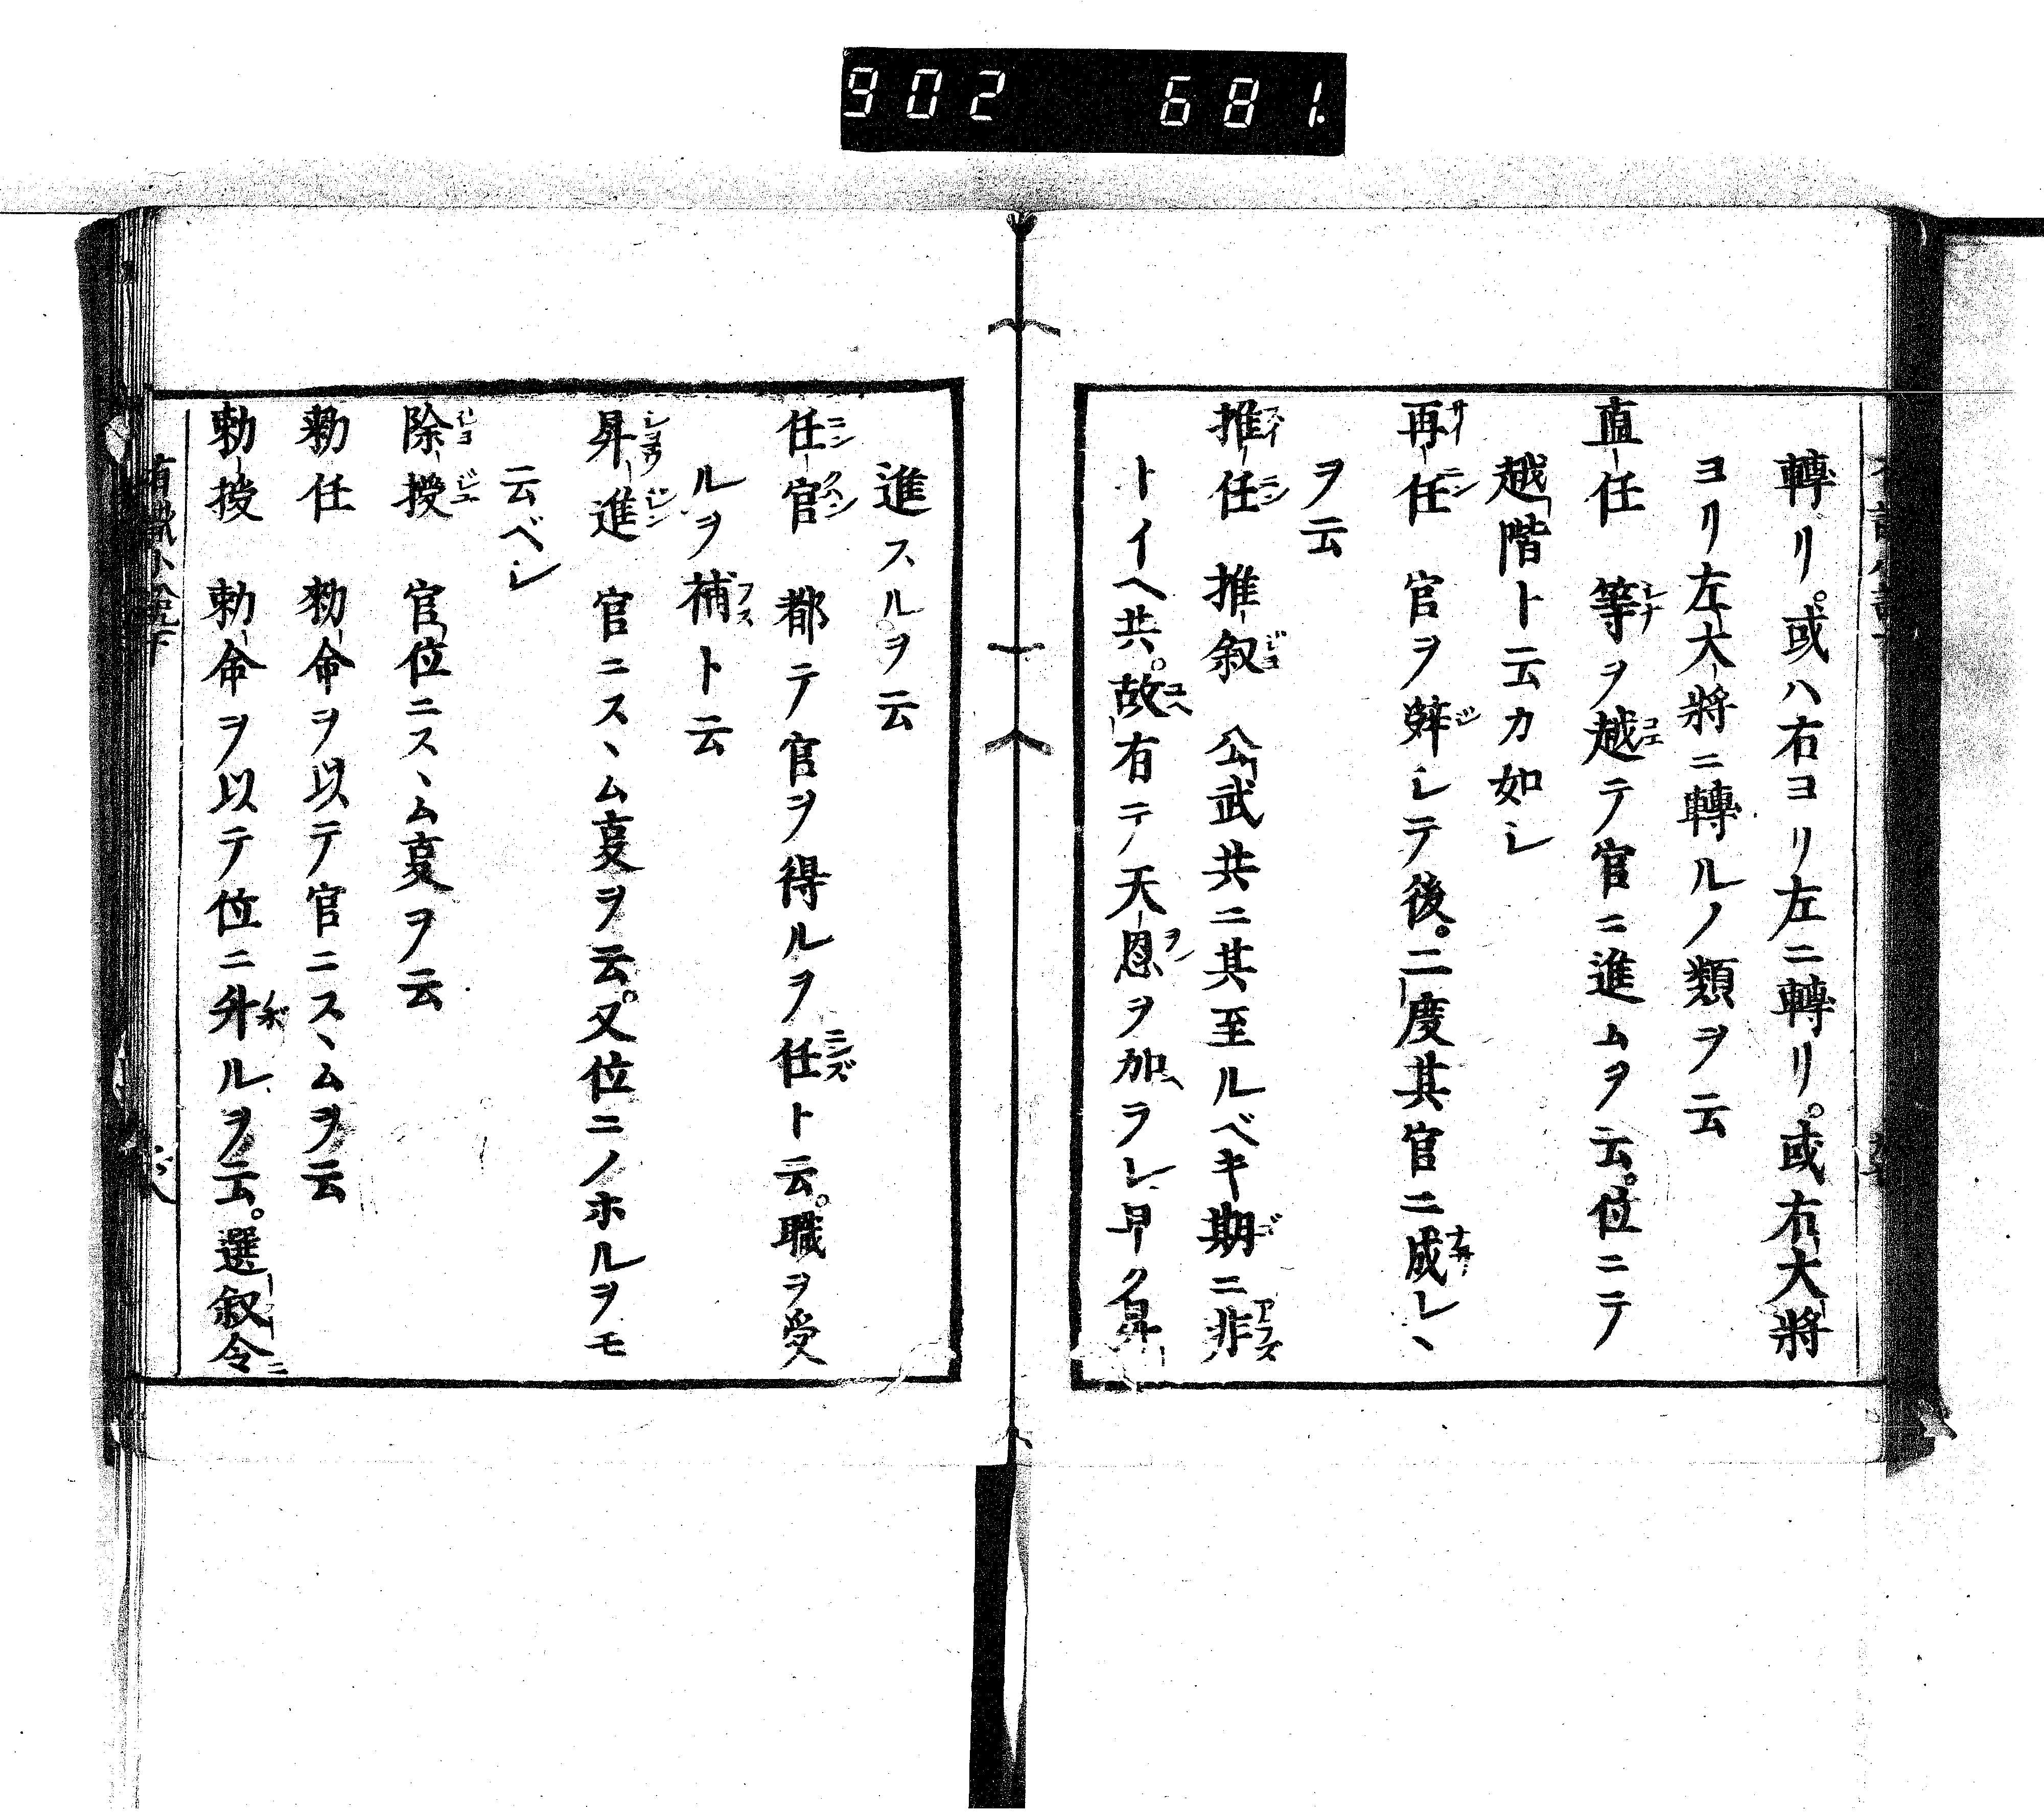 902 681
轉リ。或ハ右ヨリ左ニ轉リ。或右大將
ヨリ左大將ニ轉ルノ類ヲ云
直任 等ヲ越テ官ニ進ムヲ云。位ニテ
越階ト云カ如シ
再任 官ヲ辭シテ後。二度其官ニ成レヽ
ヲ云
推任 推叙 公武共ニ其至ルベキ期ニ非
トイヘ共。故有テ天恩ヲ加ラレ早ク昇
進スルヲ云
任官 都テ官ヲ得ルヲ任ト云。職ヲ受
ルヲ補ト云
昇進 官ニスヽム叓ヲ云。又位ニノホルヲモ
云ベシ
除授 官位ニスヽム叓ヲ云
勅任 勅命ヲ以テ官ニスヽムヲ云
勅授 勅命ヲ以テ位ニ升ルヲ云。選叙令ニ